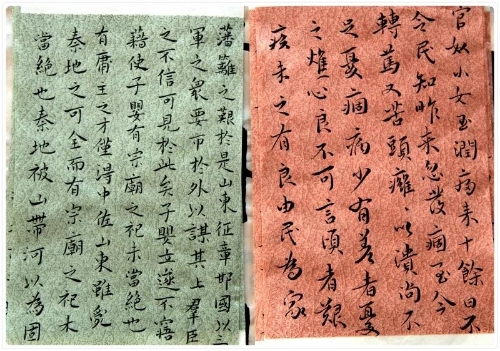 官奴小女玉潤病来十餘日不
令民知昨来忽發痼至今
轉篤又苦頭癰〻以潰尚不
足憂痼病少有差者憂
之燋心良不可言頃者艱
疾未之有良由民為家
藩籬之艱於是山東征章邯國以三
軍之衆要市於外以謀其上羣臣
之不信可見於此矣子嬰立遂不寤
藉使子嬰有宗廟之祀未當絶也
有庸主之才僅得中佐山東雖
秦地之可全而有宗廟之祀未
當絶也秦地被山帶河以為固